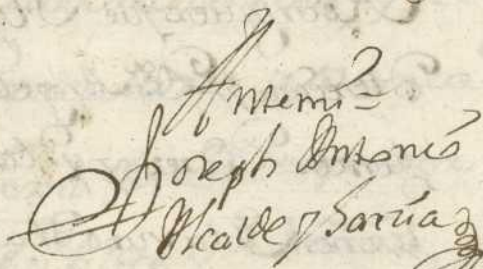 Antemi=
Joseph Antonio
Alcalde y Sarria